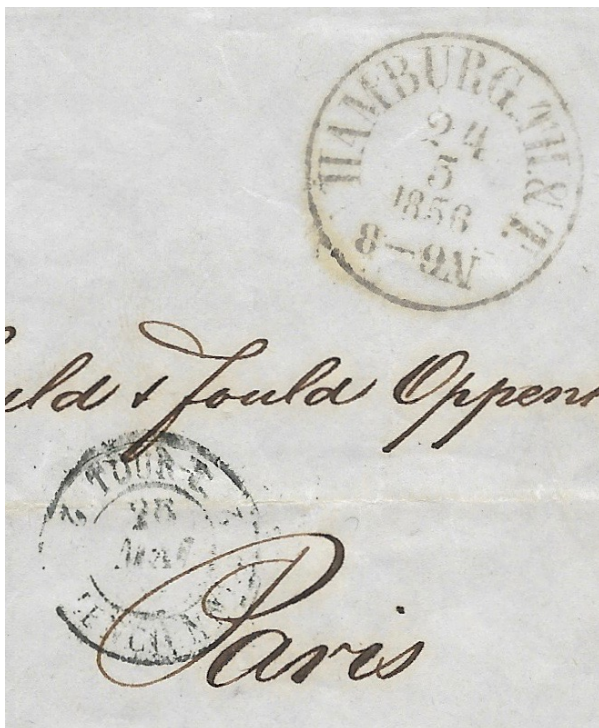 HAMBURG.TH.&T.
24
5
1856
8—9N
& Fould Oppen
2 TOUR-T 2
26
MAI
Paris